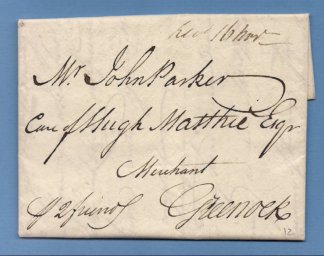 Recd 16 Novr
Mr. John Parker
Care of Hugh Matthie Esqr
Merchant
Greenock
p 2 friend
12